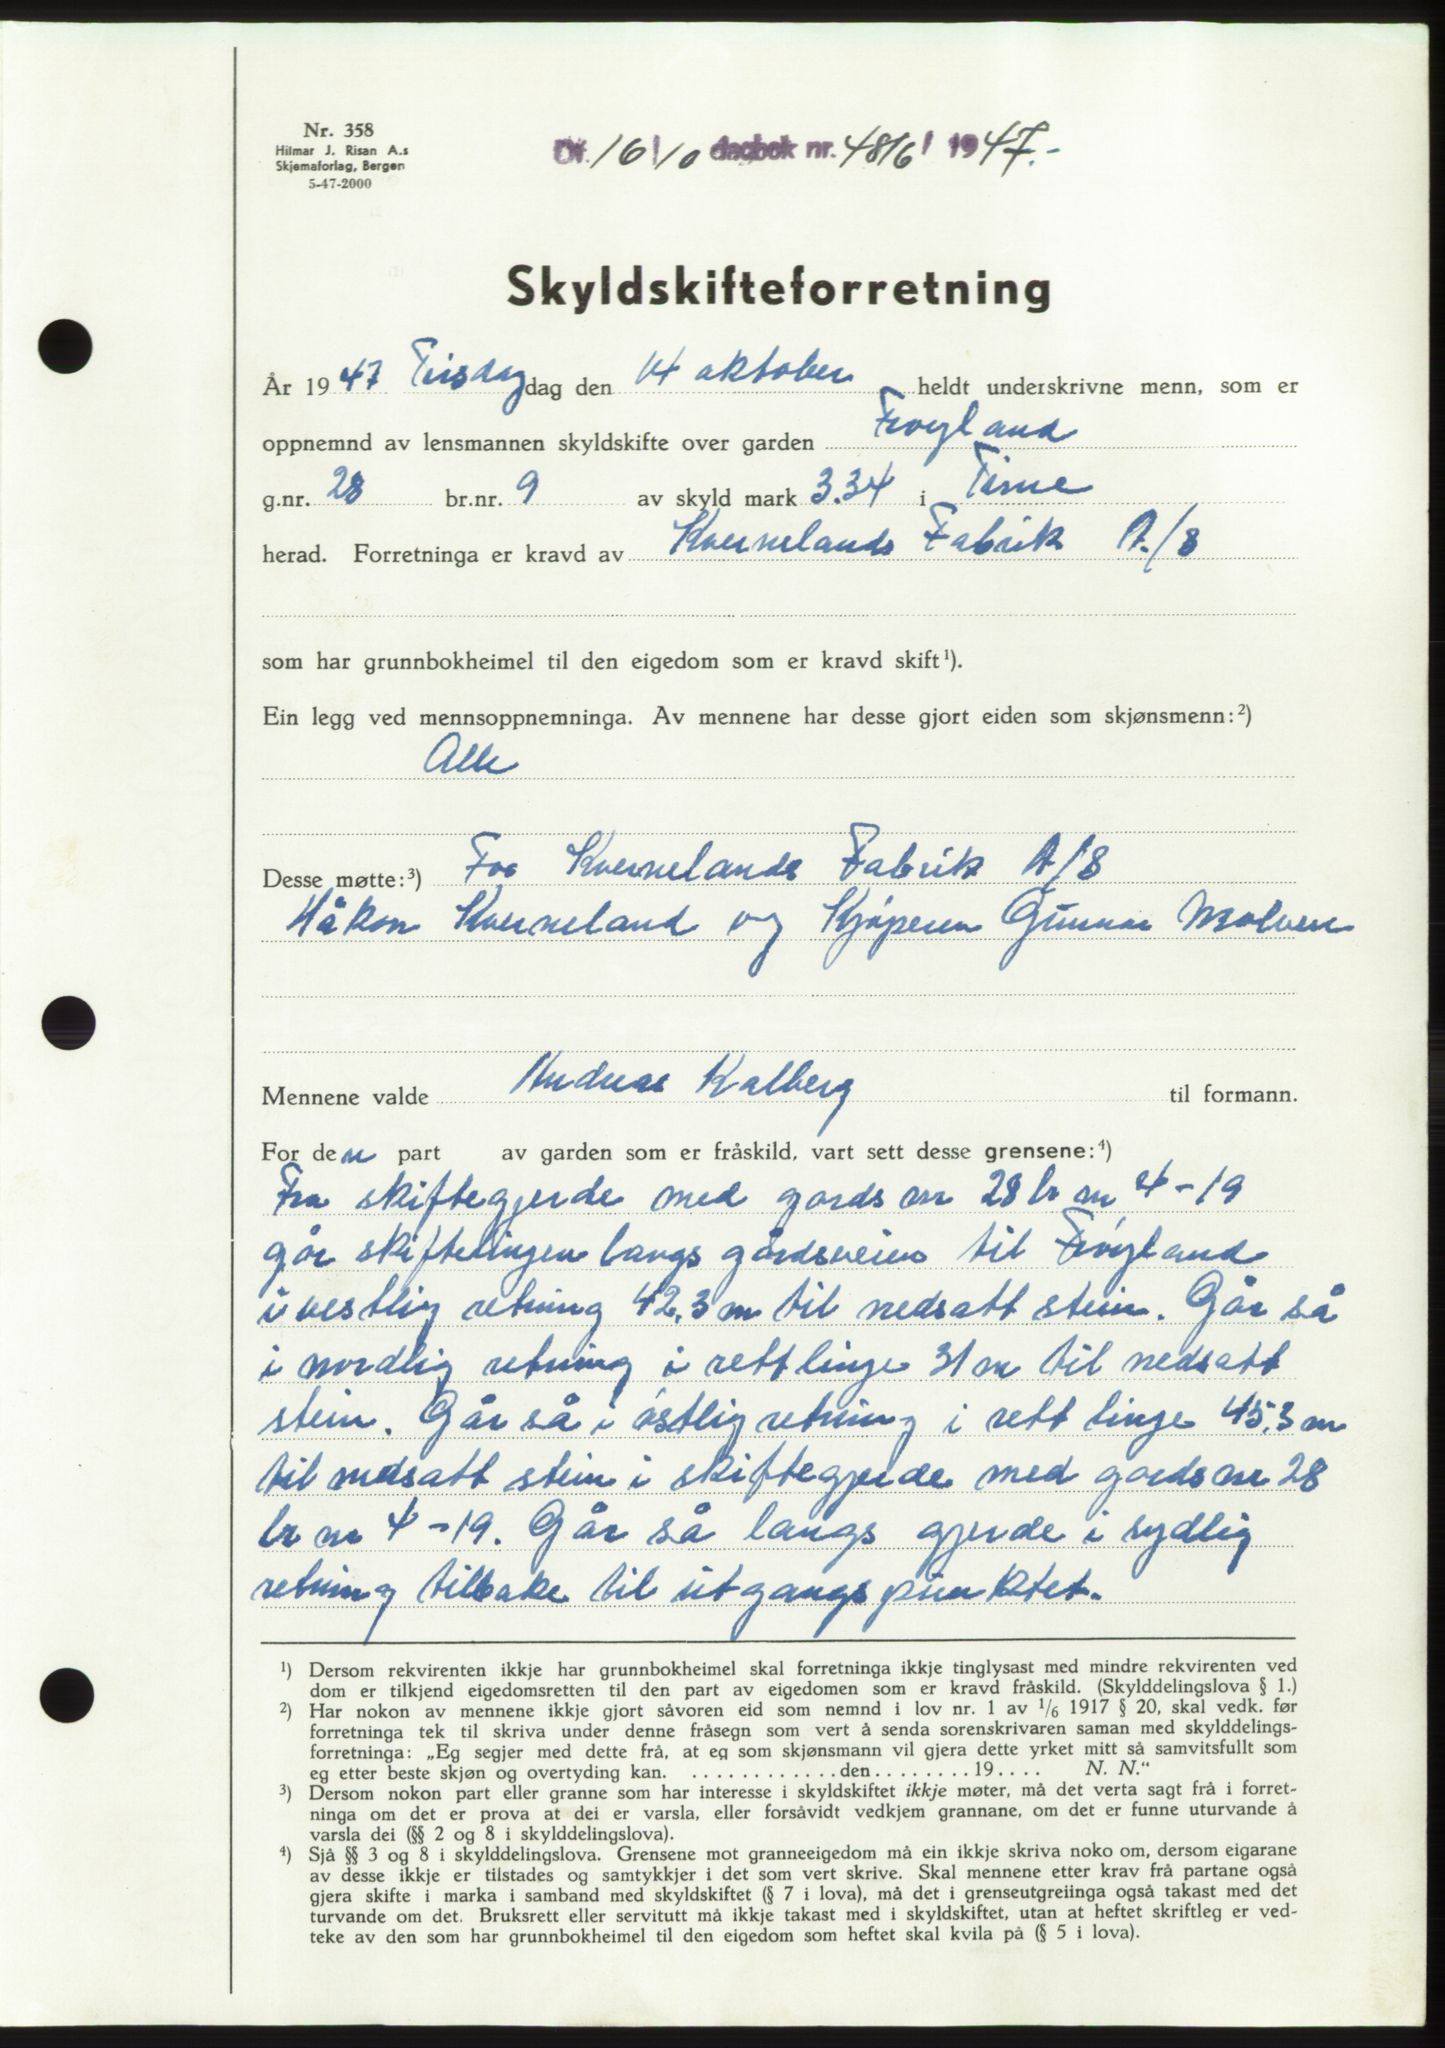 Nr. 358
Hilmar J. Risan A.s
Skjemaforlag, Bergen
5-47-2000
Df. 16/10 dagbok nr. 4816/1947.-
Skyldskifteforretning
År 1947 Tirsdag dag den 14 oktober heldt underskrivne menn, som er
oppnemnd av lensmannen skyldskifte over garden Frøyland
g.nr. 28 br.nr. 9 av skyld mark 3.34 i Time
herad. Forretninga er kravd av Kvernelands Fabrik A/S
som har grunnbokheimel til den eigedom som er kravd skift¹).
Ein legg ved mennsoppnemninga. Av mennene har desse gjort eiden som skjønsmenn:²)
Alle
Desse møtte:³) For Kvernelands Fabrik A/S
Håkon Kverneland og Kjøperen Gunnar Molven
Mennene valde Andreas Kalberg til formann.
For den part av garden som er fråskild, vart sett desse grensene:⁴)
Fra skiftegjerde med gards nr 28 br nr 4-19
går skiftelingen langs gårdsveien til Frøyland
i vestlig retning 42,3 m til nedsatt stein. Går så
i nordlig retning i rett linje 31 m til nedsatt
stein. Går så i østlig retning i rett linje 45,3 m
til nedsatt stein i skiftegjerde med gards nr 28
br nr 4-19. Går så langs gjerde i sydlig
retning tilbake til utgangspunktet.
¹) Dersom rekvirenten ikkje har grunnbokheimel skal forretninga ikkje tinglysast med mindre rekvirenten ved
dom er tilkjend eigedomsretten til den part av eigedomen som er kravd fråskild. (Skylddelingslova § 1.)
²) Har nokon av mennene ikkje gjort såvoren eid som nemnd i lov nr. 1 av 1/6 1917 § 20, skal vedk. før
forretninga tek til skriva under denne fråsegn som vert å senda sorenskrivaren saman med skylddelings-
forretninga: „Eg segjer med dette frå, at eg som skjønsmann vil gjera dette yrket mitt så samvitsfullt som
eg etter beste skjøn og overtyding kan. . . . . . . . . . . . . den . . . . . . . . 19 . . . . N. N."
³) Dersom nokon part eller granne som har interesse i skyldskiftet ikkje møter, må det verta sagt frå i forret-
ninga om det er prova at dei er varsla, eller forsåvidt vedkjem grannane, om det er funne uturvande å
varsla dei (§§ 2 og 8 i skylddelingslova).
⁴) Sjå §§ 3 og 8 i skylddelingslova. Grensene mot granneeigedom må ein ikkje skriva noko om, dersom eigarane
av desse ikkje er tilstades og samtykkjer i det som vert skrive. Skal mennene etter krav frå partane også
gjera skifte i marka i samband med skyldskiftet (§ 7 i lova), må det i grenseutgreiinga også takast med det
turvande om det. Bruksrett eller servitutt må ikkje takast med i skyldskiftet, utan at heftet skriftleg er ved-
teke av den som har grunnbokheimel til den eigedom som heftet skal kvila på (§ 5 i lova).